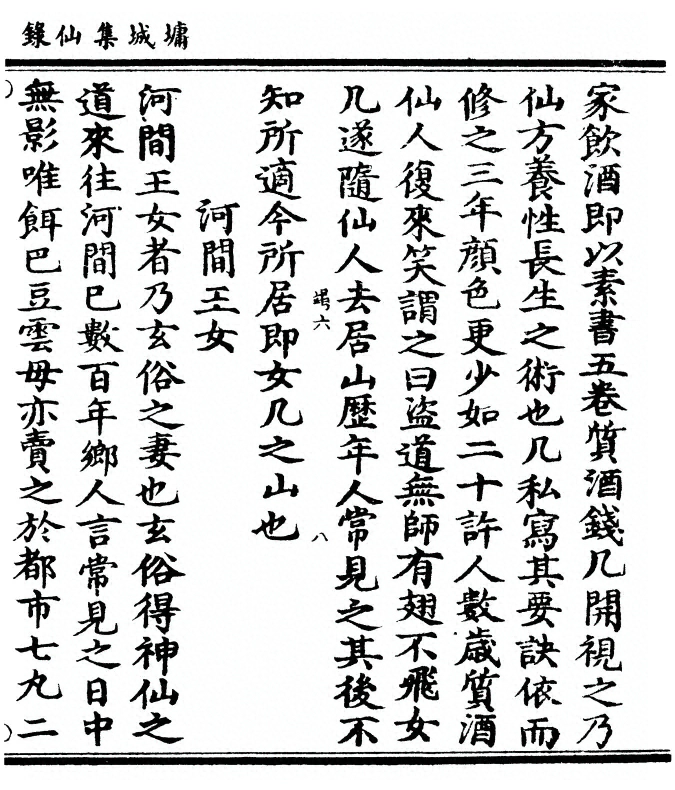 墉城集仙錄
家飲酒即以素書五卷質酒錢几開視之乃
仙方養性長生之術也几私寫其要訣依而
修之三年顔色更少如二十許人數歲質酒
仙人復來笑謂之曰盜道無師有翅不飛女
几遂隨仙人去居山歷年人常見之其後不
竭六 八
知所適今所居即女几之山也
河間王女
河間王女者乃玄俗之妻也玄俗得神仙之
道來往河間巳數百年鄉人言常見之日中
無影唯餌巴豆雲母亦賣之於都市七丸二